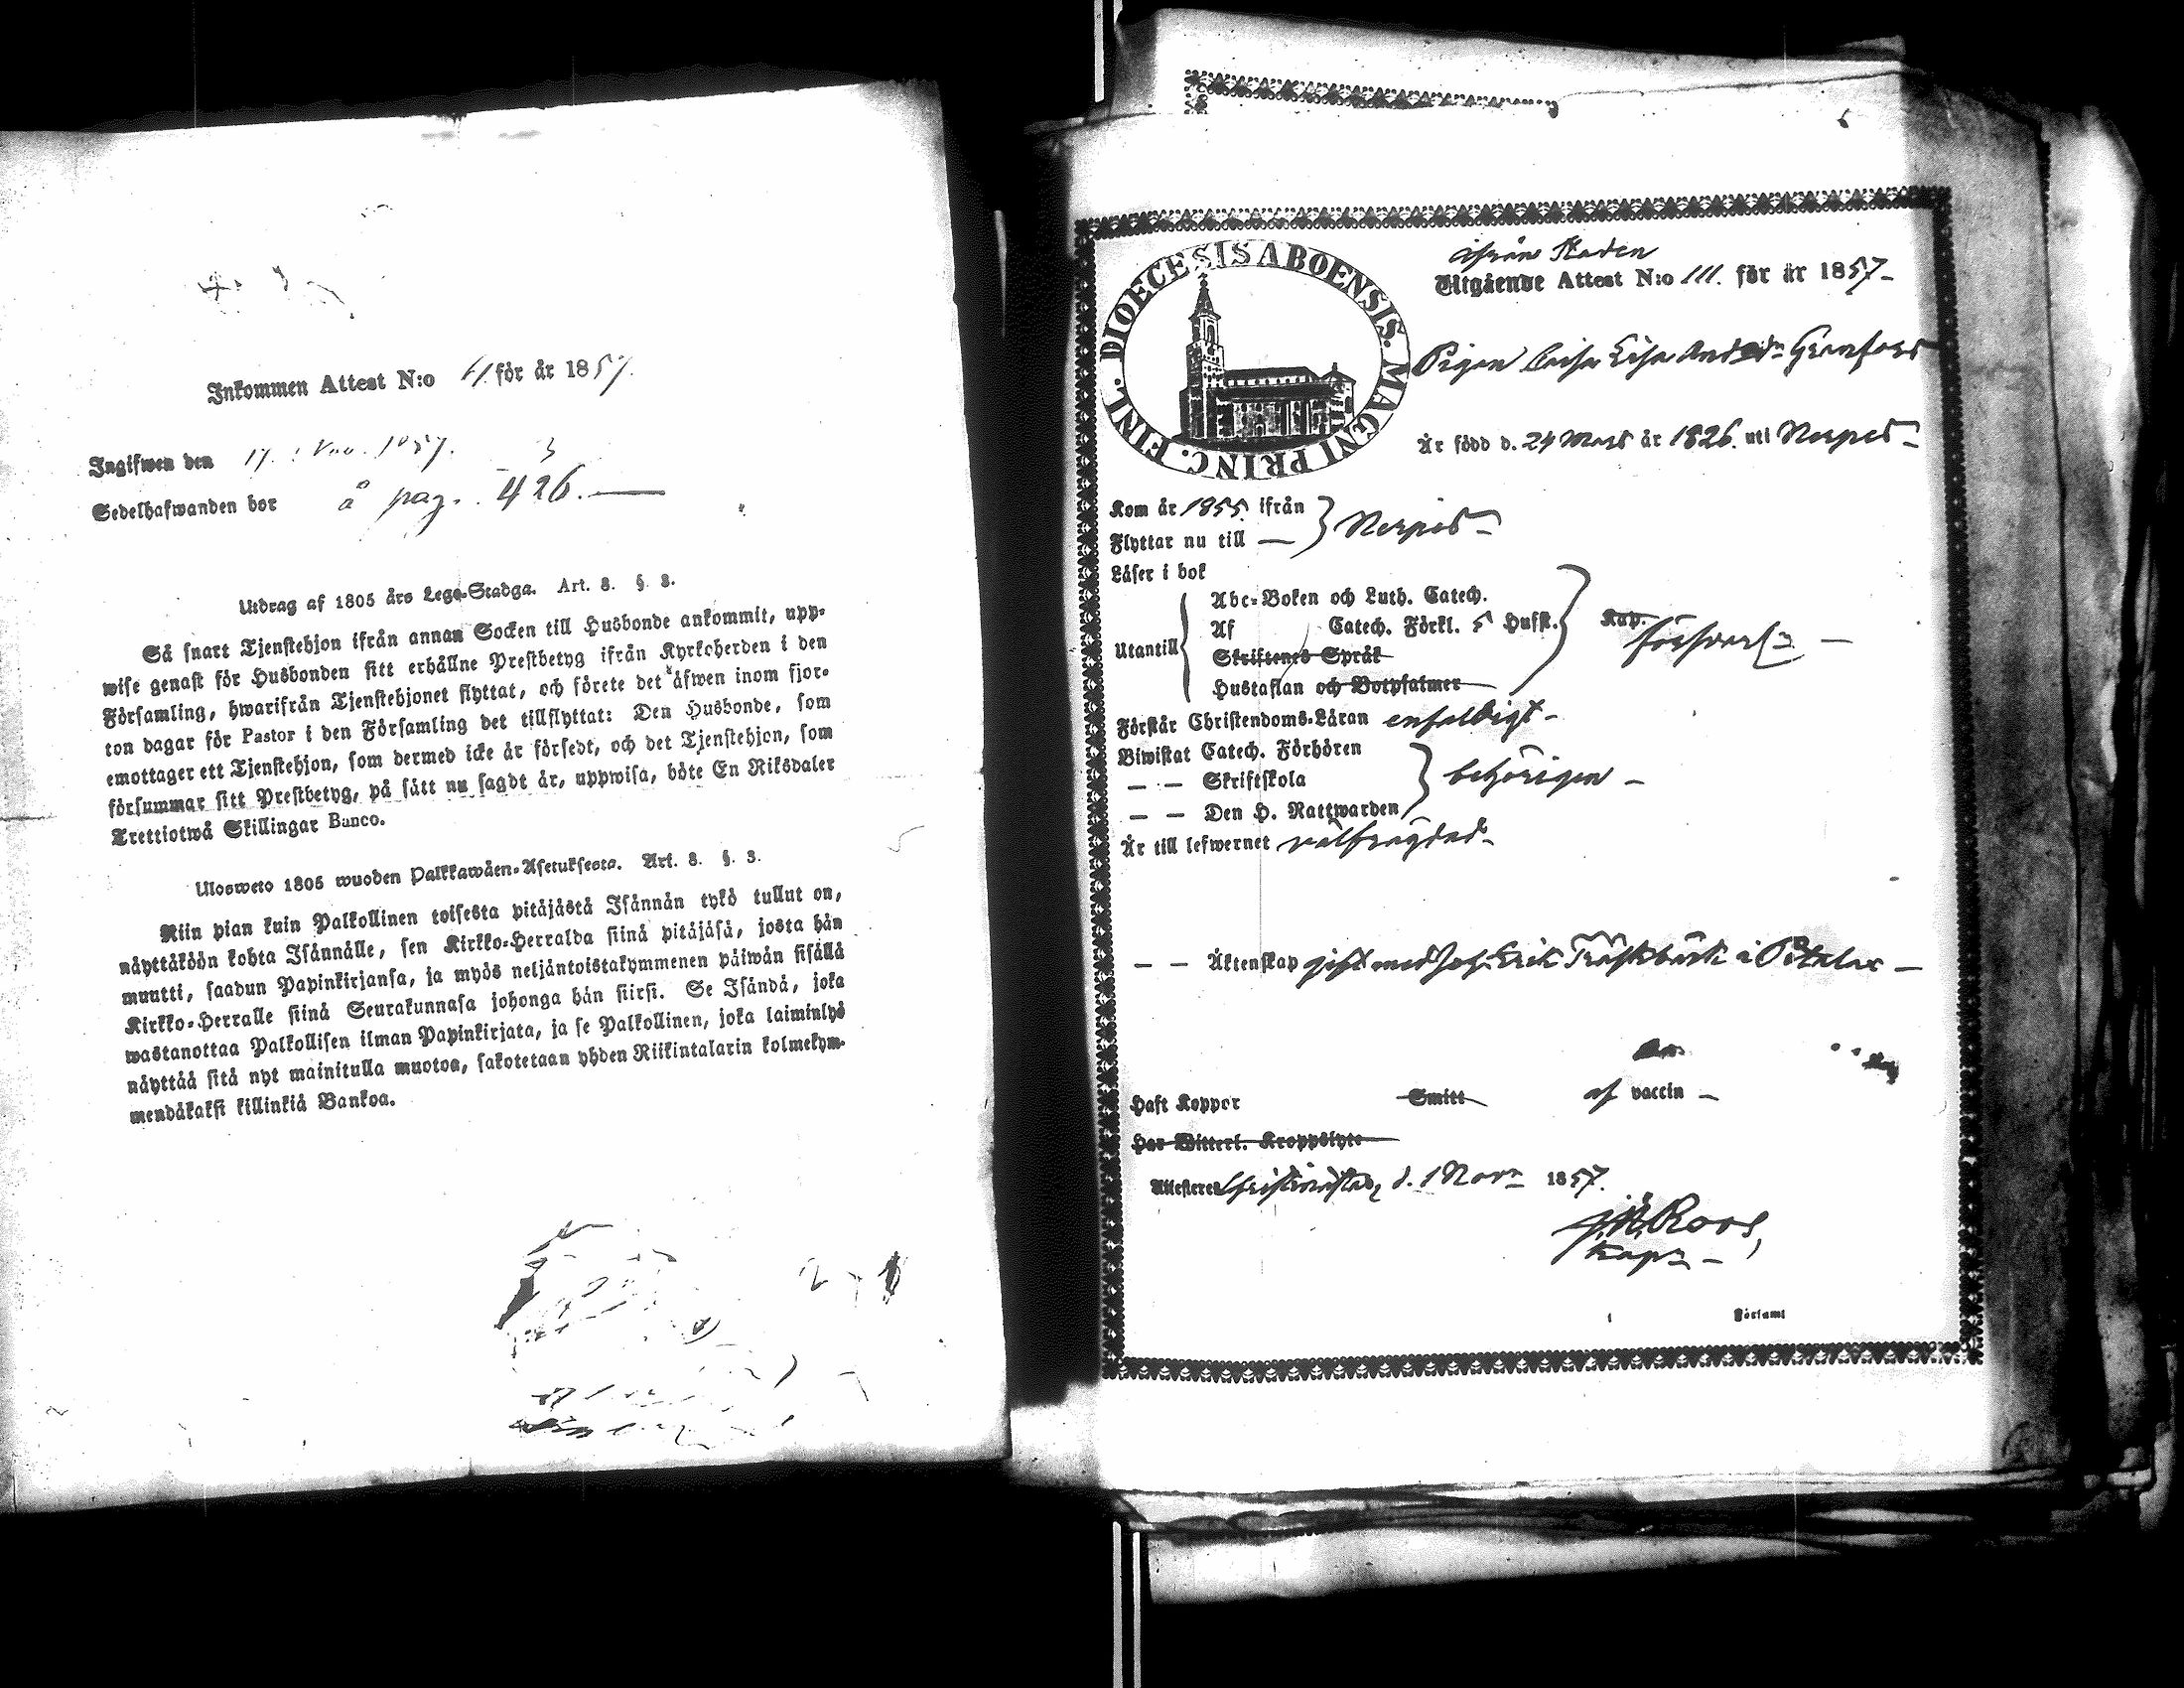 Inkommen Attest N:o för år 1857.
Ingifwen den 17. Nov. 1857.
Sedelhafwanden bor å pag. 426.
Utdrag af 1805 års Lego-Stadga. Art. 8. §. 3.
Så snart Tjenstehjon ifrån annan Socken till Husbonde ankommit, upp-
wise genast för Husbonden sitt erhållne Prestbetyg ifrån Kyrkoherden i den
Församling, hwarifrån Tjenstehjonet flyttat, och förete det åfwen inom fjor-
ton dagar för Pastor i den Församling det tillflyttat: Den Husbonde, som
emottager ett Tjenstehjon, som dermed icke är försedt, och det Tjenstehjon, som
försummar sitt Prestbetyg, på sätt nu sagdt är, uppwisa, böte En Riksdaler
Trettiotwå Skillingar Banco.
Ulosweto 1805 wuoden Palkkawäen-Asetuksesta. Art. 8. §. 3.
Niin pian kuin Palkollinen toisesta pitäjästä Isännän tykö tullut on,
näyttäköön kohta Isännälle, sen Kirkko-Herralda siinä pitäjäsä, josta hän
muutti, saadun Papinkirjansa, ja myös neljäntoistakymmenen päiwän sisällä
Kirkko-Herralle siinä Seurakunnasa johonga hän siirsi. Se Isändä, joka
wastanottaa Palkollisen ilman Papinkirjata, ja se Palkollinen, joka laiminlyö
näyttää sitä nyt mainitulla muotoa, sakotetaan yhden Riikintalarin kolmekym-
mendäkaksi killinkiä Bankoa.
DIOECESIS ABOENSIS. MAGNI PRINC. FINL.
ifrån Staden
Utgående Attest N:o 111. för år 1857-
Pigan Caisa Lisa Andersdr Granfors
Är född d. 24 Mars år 1826. uti Nerpes-
Kom år 1855. ifrån
Flyttar nu till — Nerpes-
Läser i bok
Abc-Boken och Luth. Catech.
Af Catech. Förkl. 5 Hufst. Kap.
Utantill försvarl. —
Skriftenes Språk
Hustaflan och Botpsalmer
Förstår Christendoms-Läran enfaldigt-
Biwistat Catech. Förhören
— — Skriftskola behörigen —
— — Den H. Nattwarden
Är till lefwernet välfrägdad-
— — Äktenskap gift med Joh. Erik Träskbäck i Petalax —
Haft Koppor Smitt af vaccin —
Har Witterl. Kroppslyte
Attesteras Christinestad, d. 1 Nov. 1857.
Roos,
Kapn —
Församl